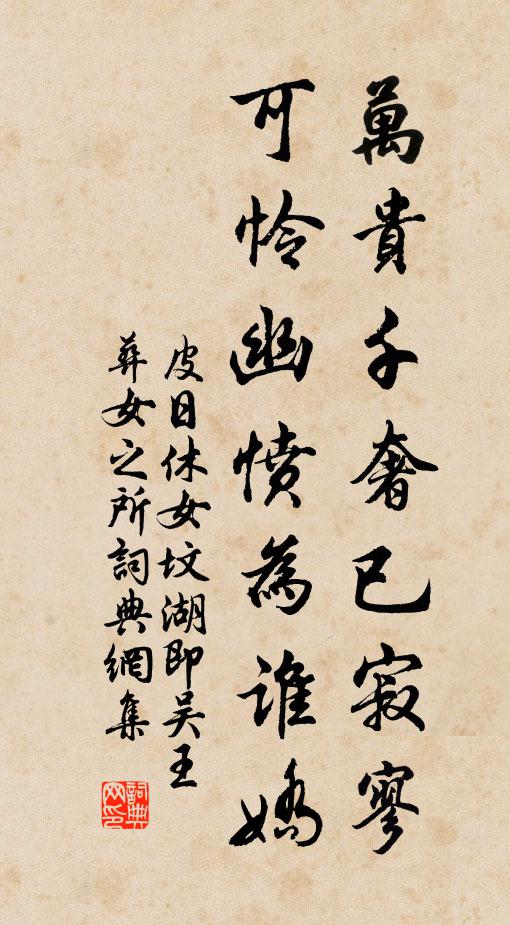 萬貴千奢已寂寥
可憐幽憤為誰嬌
皮日休女墳湖即吴王
葬女之所詞典網集
詞典
网印